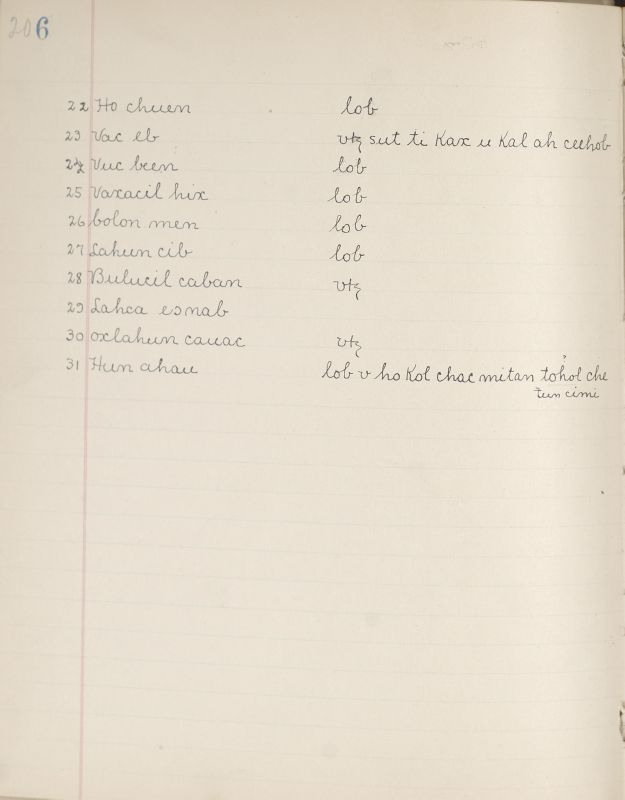 206
22 Ho chuen lob
23 Vac eb vtz sut ti Kax u Kal ah ceehob
24 Vuc been lob
25 Vaxacil hix lob
26 bolon men lob
27 Lahun cib lob
28 Bulucil caban vtz
29 Lahca esnab
30 oxlahun cauac vtz
31 Hun ahau lob v ho Kol chac mitan tohol che
?
tun cimi